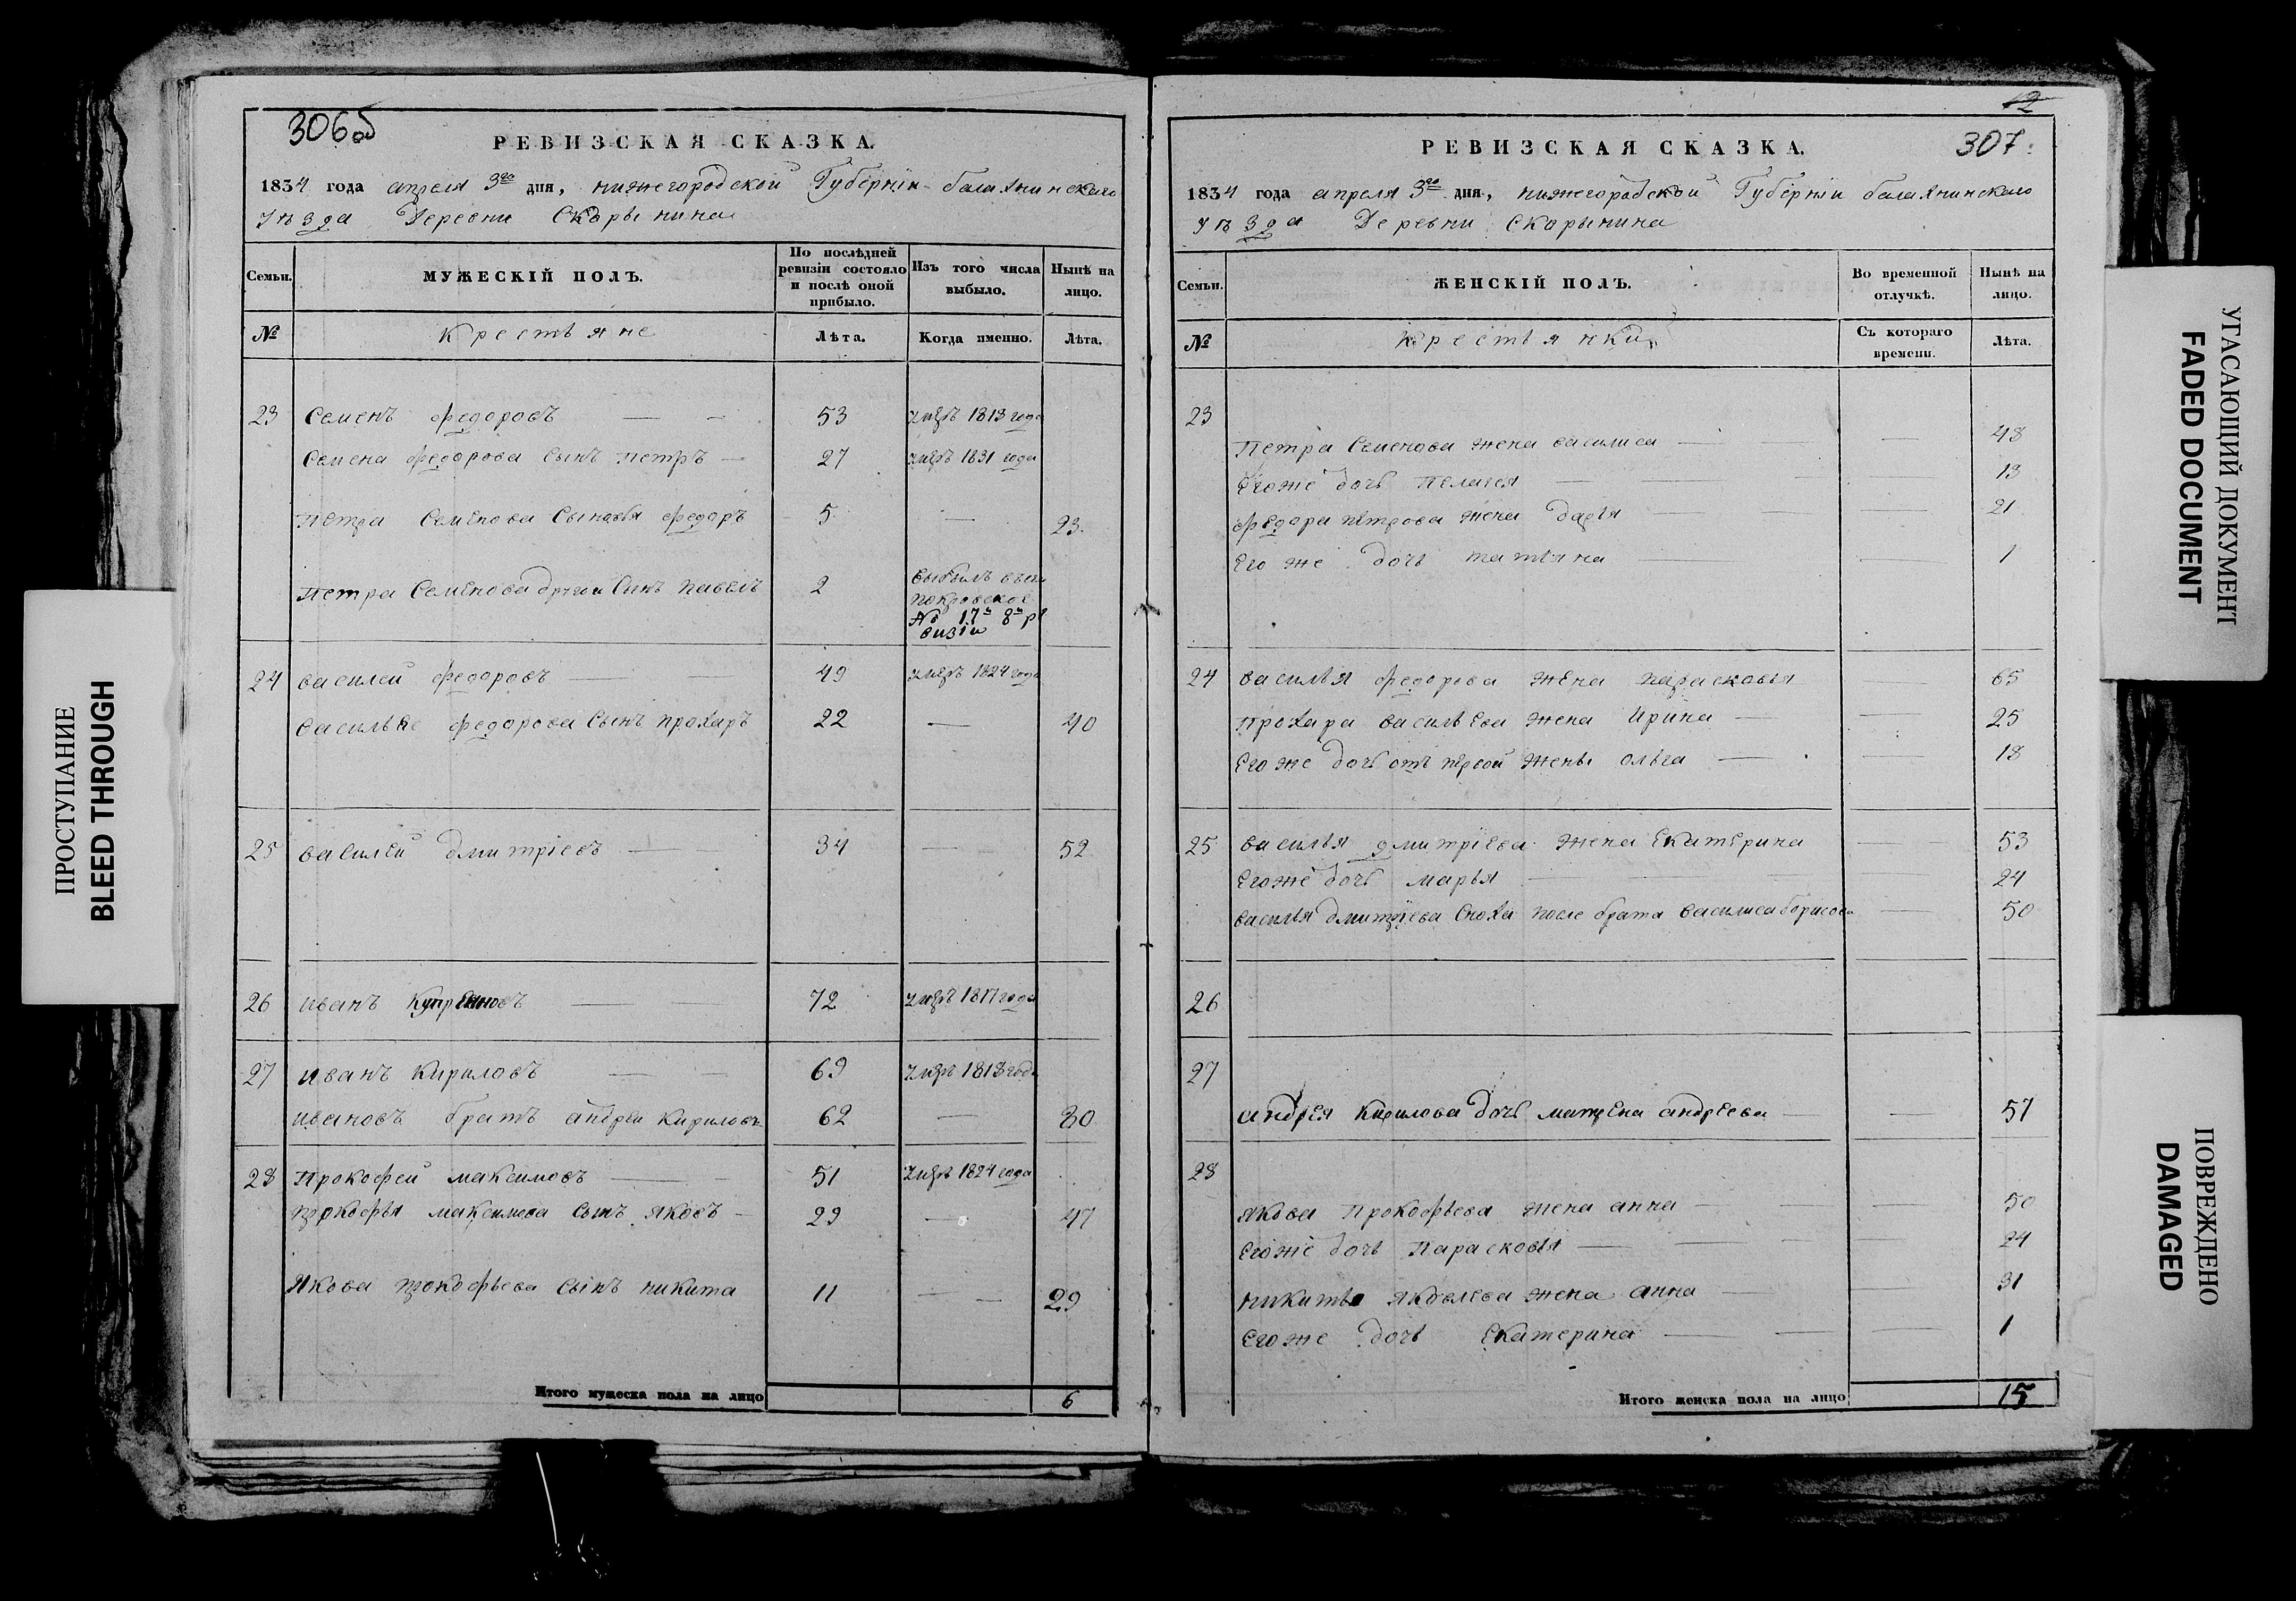 306об
РЕВИЗСКАЯ СКАЗКА.
1834 года апреля 3го дня, нижегородской Губернiи балахнинскаго
уезда Деревни Скарынина
Семьи.
МУЖЕСКІЙ ПОЛЪ.
По послѣдней ревизіи состояло и послѣ оной прибыло.
Изъ того числа выбыло.
Нынѣ на лицо.
№
крестьяне
Лѣта.
Когда именно.
Лѣта.
23 Семенъ федоровъ — — 53 умеръ 1813 года
Семена федорова сынъ петръ — 27 умеръ 1831 года
Петра Семенова сыновья федоръ 5 — 23.
Петра Семенова другой сынъ павелъ 2 выбылъ
покровское
№ 17й 8й ре
визiи
24 василей федоровъ — 49 умеръ 1824 года
васильяе федорова сынъ прохаръ 22 — 40
25 василей дмитрiевъ — 34 — 52
26 иванъ — — 72 умеръ 1817 года
27 иванъ кириловъ — — 69 умеръ 1818 года
ивановъ братъ андреи кириловъ 62 — 80
28 Прокофей максимовъ — 51 умеръ 1824 года
прокофья максимова сынъ яковъ — 29 — 47
Якова прокофьева сынъ никита 11 — — 29
Итого мужеска пола на лицо 6
12
307.
РЕВИЗСКАЯ СКАЗКА.
1834 года апреля 3го дня, нижегородской Губернiи балахнинскаго
уезда Деревни Скарынина
Семьи.
ЖЕНСКІЙ ПОЛЪ.
Во временной отлучкѣ.
Нынѣ на лицо.
№
крестьянки
Съ котораго времени.
Лѣта.
23
Петра Семенова жена василиса — — 48
Егоже дочь пелагея — — 13
федора петрова жена дарья — — 21
Его же дочь татьяна — — 1
24 василья федорова жена парасковья — 65
прохара васильева жена ирина — — 25
Его же дочь отъ первой жены ольга — — 18
25 василья дмитрiева жена Екатерина — 53
Егоже дочь марья — 24
василья дмитрiева сноха после брата василиса борисова — 50
26
27
андрея кирилова дочь матрена андреева — — 57
28
якова прокофьева жена анна — — 50
Егоже дочь парасковья — — 24
никиты яковлева жена анна — — 31
Егоже дочь Екатерина — — 1
Итого женска пола на лицо 15
ПРОСТУПАНИЕ
BLEED THROUGH
УГАСАЮЩИЙ ДОКУМЕНТ
FADED DOCUMENT
ПОВРЕЖДЕНО
DAMAGED